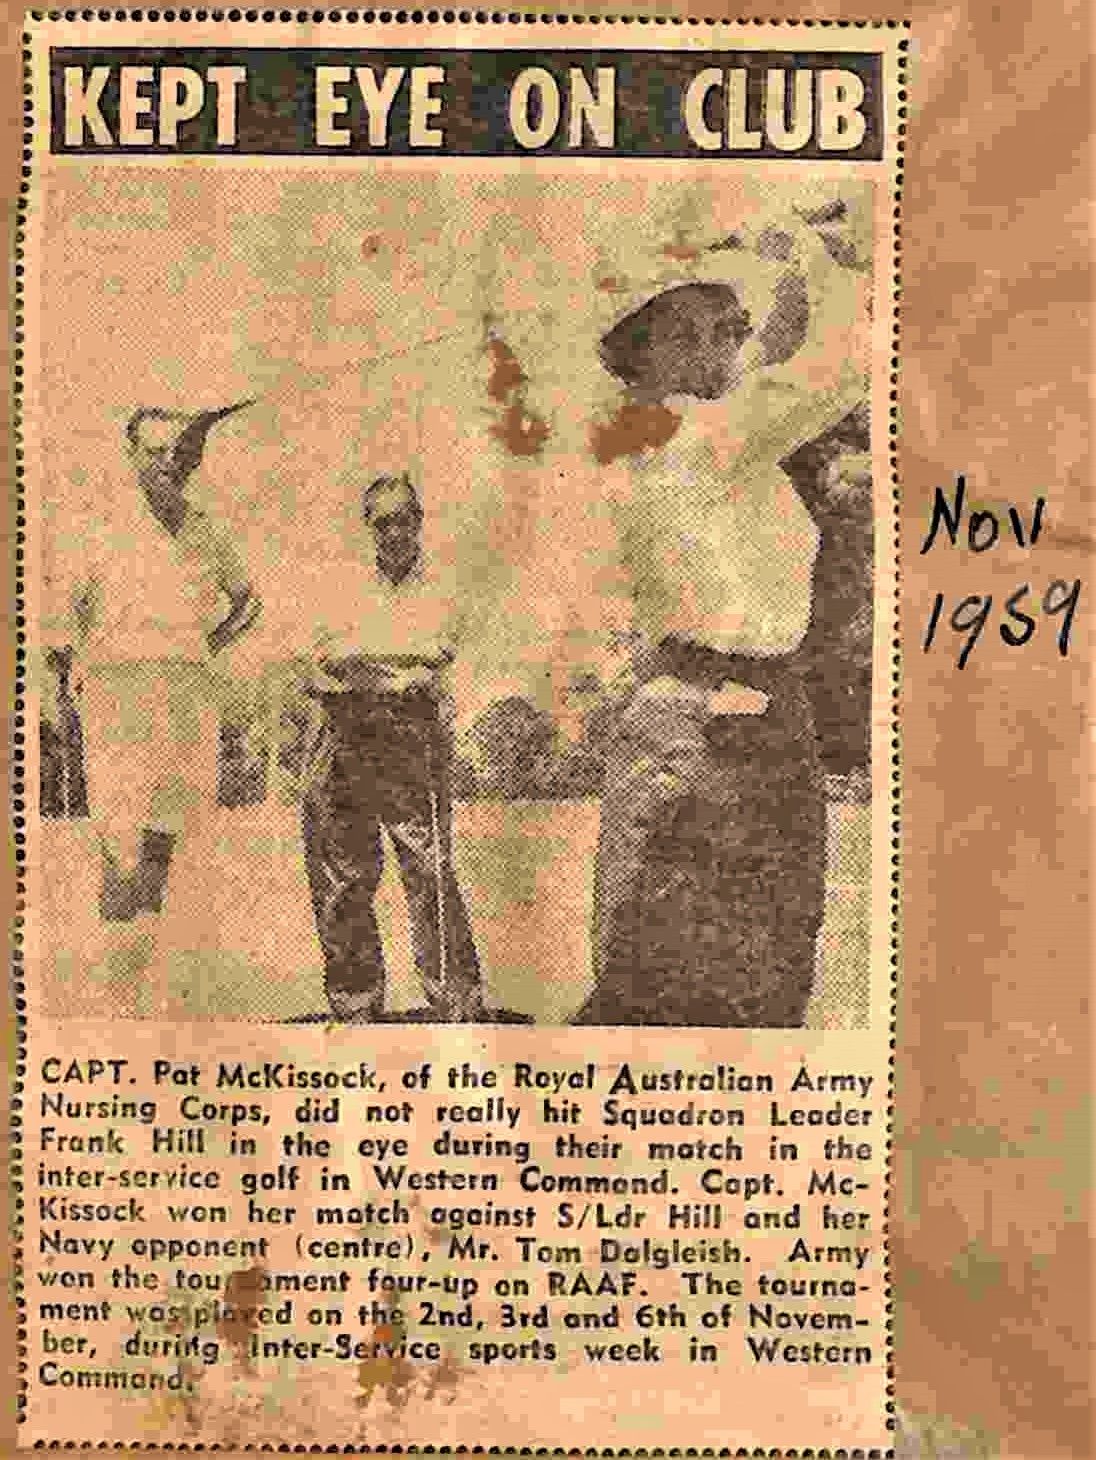 KEPT EYE ON CLUB
Nov
1959
CAPT. Pat McKissock, of the Royal Australian Army
Nursing Corps, did not really hit Squadron Leader
Frank Hill in the eye during their match in the
inter-service golf in Western Command. Capt. Mc-
Kissock won her match against S/Ldr Hill and her
Navy opponent (centre), Mr. Tom Dalgleish. Army
won the tournament four-up on RAAF. The tourna-
ment was played on the 2nd, 3rd and 6th of Novem-
ber, during Inter-Service sports week in Western
Command.